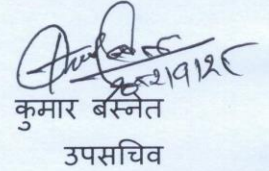 कुमार बस्नेत
उपसचिव